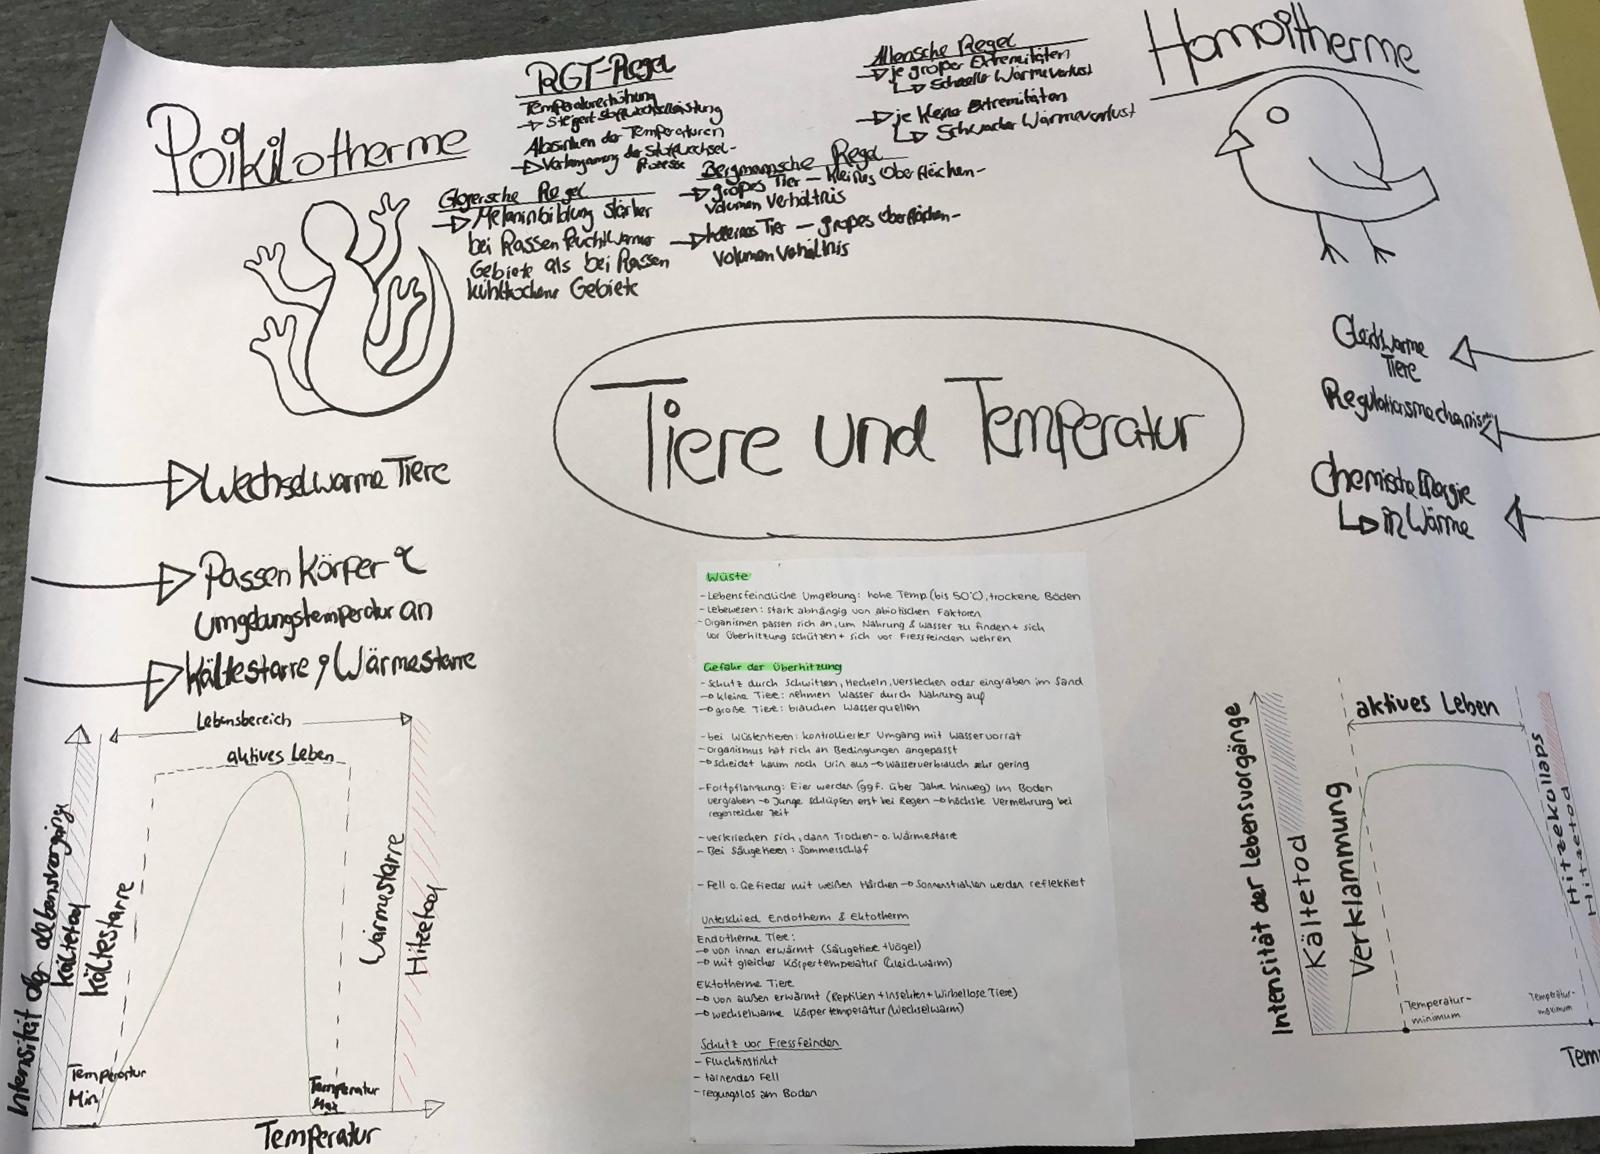 Poikilotherme
RGT-Regel
Temperaturerhöhung
→ Steigert Stoffwechselleistung
Absinken der Temperaturen
→ Verlangsamung der Stoffwechsel-
prozesse
Allensche Regel
→ je großer Extremitäten
↳ Schneller Wärmeverlust
→ je kleiner Extremitäten
↳ Schwacher Wärmeverlust
Homoitherme
Glogersche Regel
→ Melaninbildung stärker
bei Rassen feuchtwarmer
Gebiete als bei Rassen
kühltrockener Gebiete
Bergmannsche Regel
→ großes Tier – kleines Oberflächen-
volumen Verhältnis
→ kleines Tier – großes Oberflächen-
volumen Verhältnis
Tiere und Temperatur
→ Wechselwarme Tiere
→ Passen Körper &
Umgebungstemperatur an
→ Kältestarre, Wärmestarre
Gleichwarme
Tiere
Regulationsmechanism
Chemische Energie
↳ in Wärme
Lebensbereich
aktives Leben
Intensität der
Kältetod
Kältestarre
Wärmestarre
Hitzetod
Temperatur
Min
Temperatur
Max
Temperatur
Wüste
- Lebensfeindliche Umgebung: hohe Temp. (bis 50°C), trockene Böden
- Lebewesen: stark abhängig von abiotischen Faktoren
- Organismen passen sich an, um Nahrung & Wasser zu finden + sich
vor Überhitzung schützen + sich vor Fressfeinden wehren
Gefahr der Überhitzung
- Schutz durch Schwitzen, Hecheln, Verstecken oder eingraben im Sand
→ kleine Tiere: nehmen Wasser durch Nahrung auf
→ große Tiere: brauchen Wasserquellen
- bei Wüstentieren: kontrollierter Umgang mit Wasservorrat
- Organismus hat sich an Bedingungen angepasst
→ scheidet kaum noch Urin aus → Wasserverbrauch sehr gering
- Fortpflanzung: Eier werden (ggf. über Jahre hinweg) im Boden
vergraben → Junge schlüpfen erst bei Regen → höchste Vermehrung bei
regenreicher Zeit
- verkriechen sich, dann Trocken- o. Wärmestarre
- Bei Säugetieren: Sommerschlaf
- Fell o. Gefieder mit weißen Härchen → Sonnenstrahlen werden reflektiert
Unterschied Endotherm & Ektotherm
Endotherme Tiere:
→ von innen erwärmt (Säugetiere + Vögel)
→ mit gleicher Körpertemperatur (Gleichwarm)
Ektotherme Tiere
→ von außen erwärmt (Reptilien + Insekten + Wirbellose Tiere)
→ wechselwarme Körpertemperatur (Wechselwarm)
Schutz vor Fressfeinden
- Fluchtinstinkt
- tarnendes Fell
- regungslos am Boden
aktives Leben
Intensität der Lebensvorgänge
Kältetod
Verklammung
Hitzekollaps
Hitzetod
Temperatur-
minimum
Temperatur-
maximum
Tem